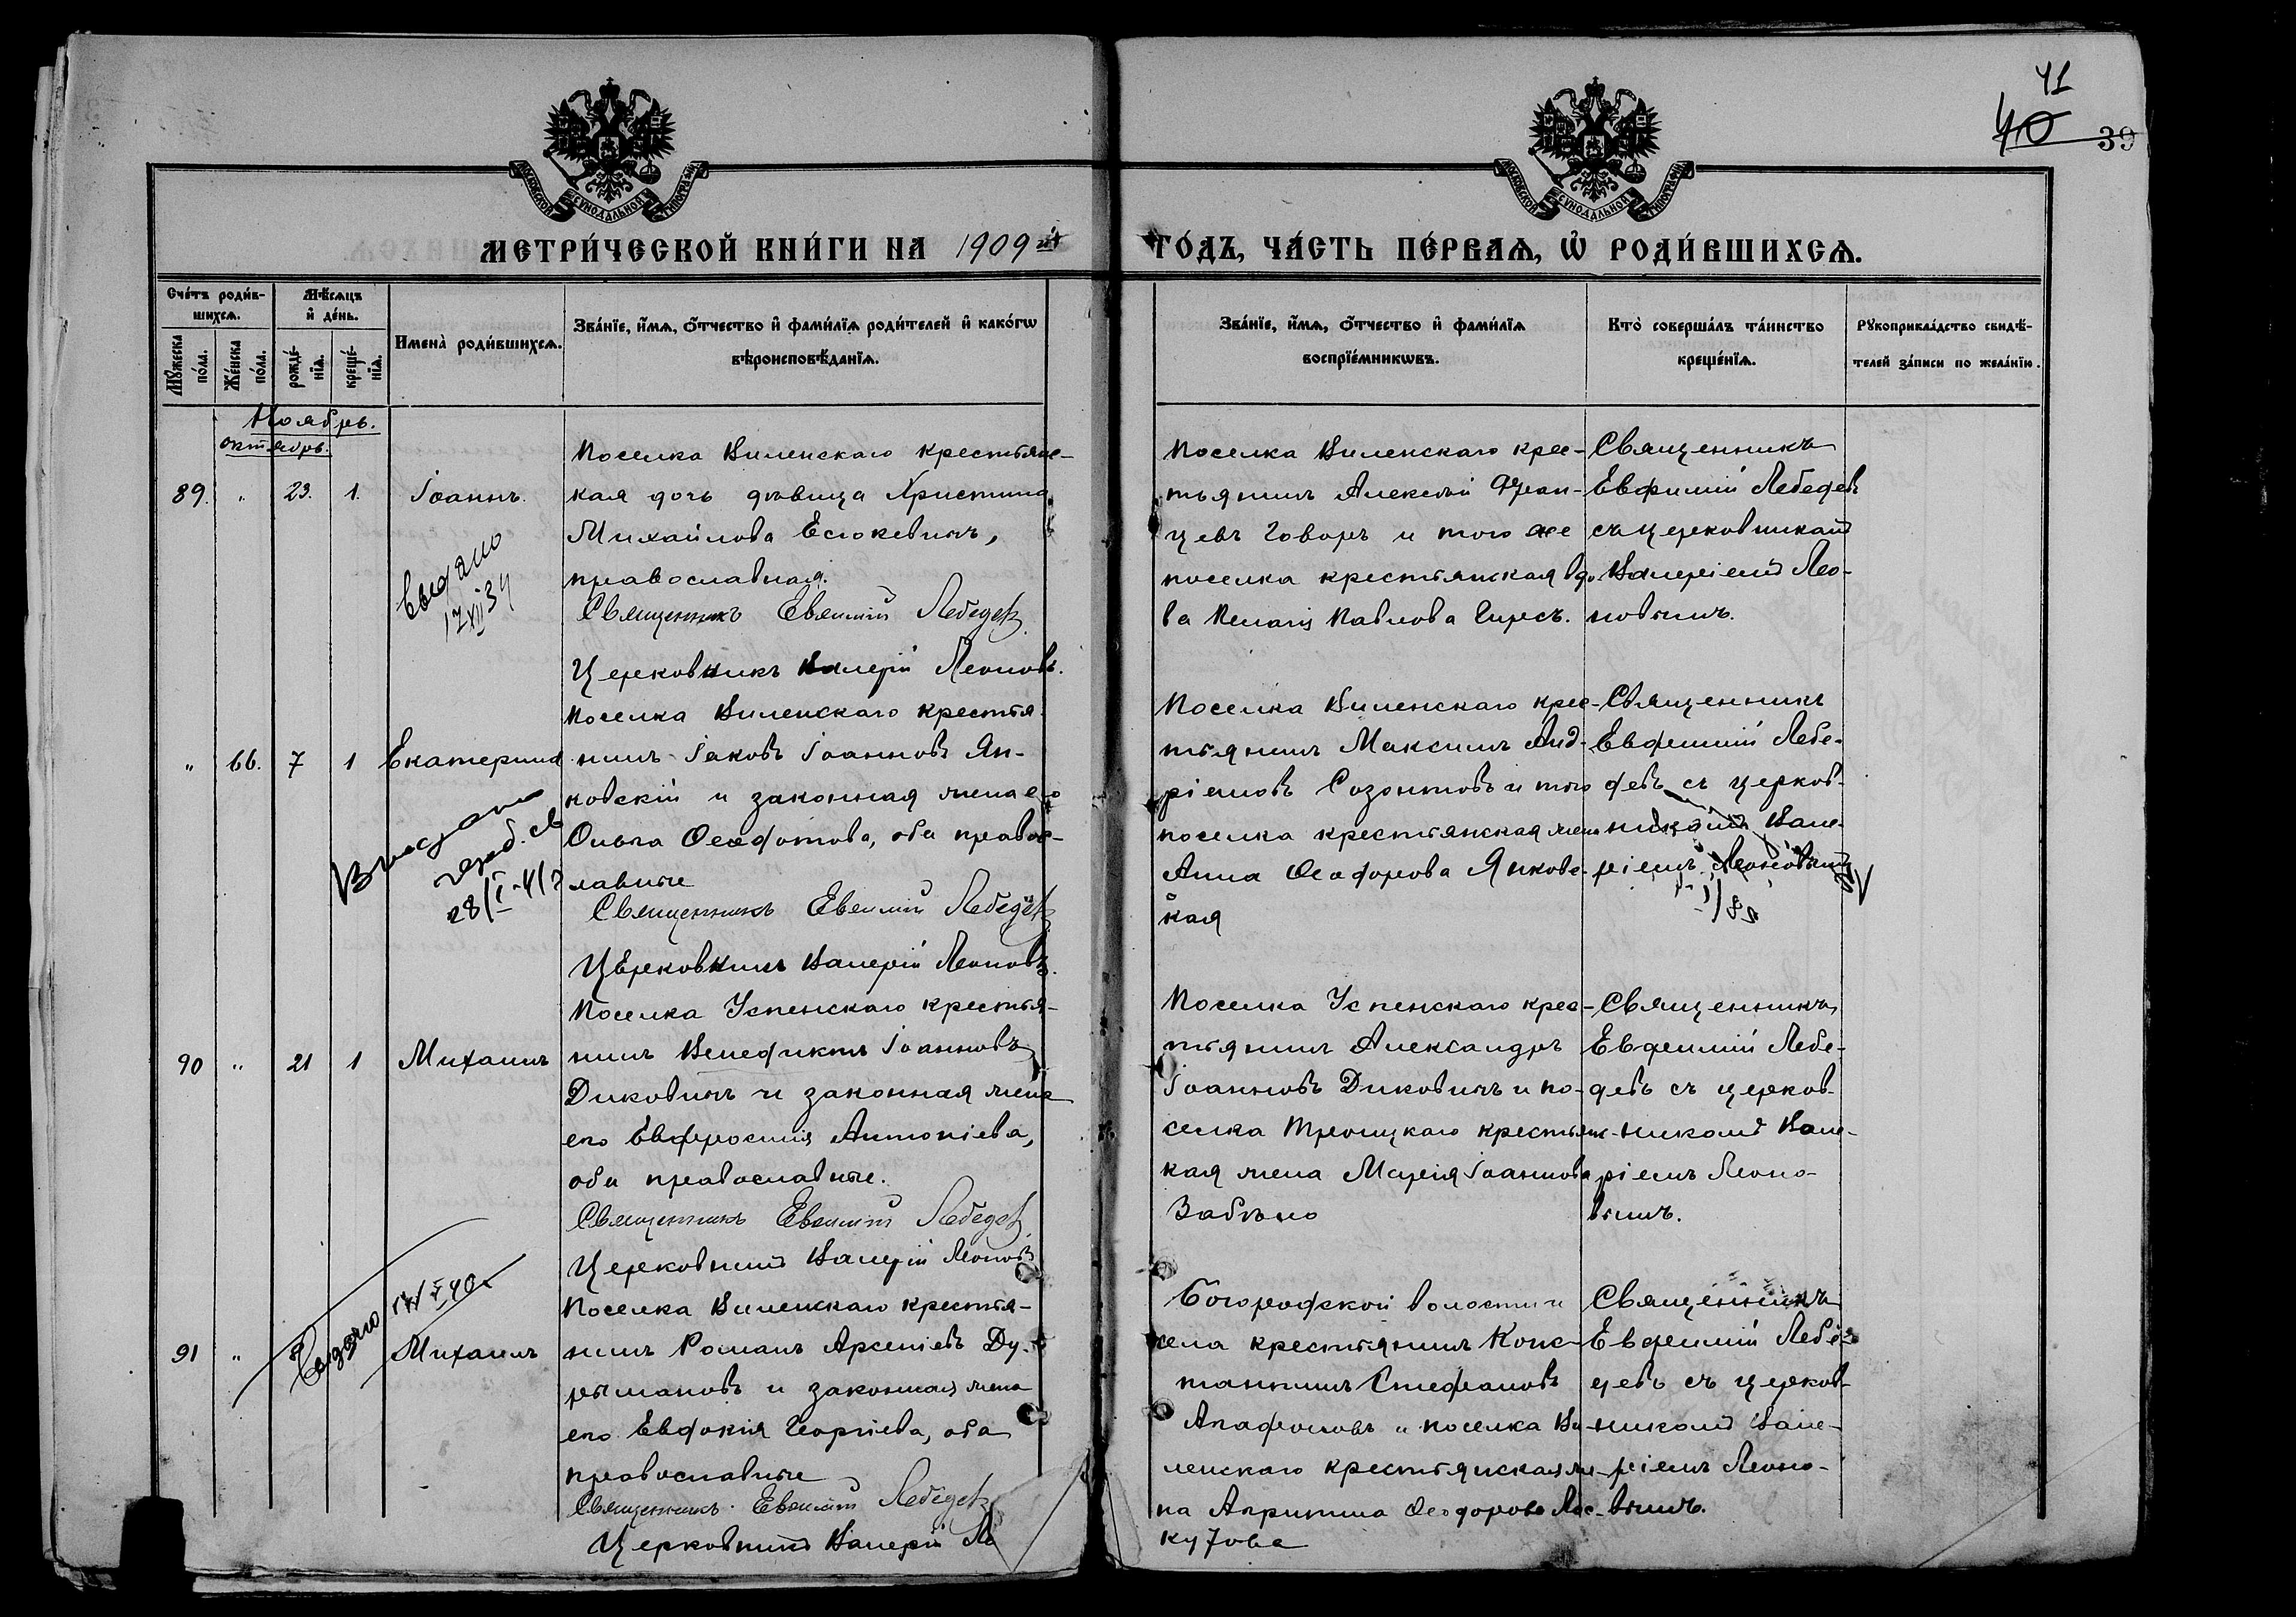 41
40 39
МОСКОВСКОЙ СѴНОДАЛЬНОЙ ТИПОГРАФІИ
МОСКОВСКОЙ СѴНОДАЛЬНОЙ ТИПОГРАФІИ
МЕТРИ́ЧЕСКОЙ КНИ́ГИ НА 1909 й
ГО́ДЪ, ЧА́СТЬ ПЕ́РВАѦ, Ѡ҆ РОДИ́ВШИХСѦ.
Сче́тъ роди́в-
шихсѧ.
Мѣ́сѧцъ
и҆ де́нь.
Мꙋ́жеска
по́ла.
Же́нска
по́ла.
рожде́-
нїѧ.
креще́-
нїѧ.
Имена̀ роди́вшихсѧ.
Зва́нїе, и҆́мѧ, ѻ҆́тчество и҆ фами́лїѧ роди́телей и҆ како́гѡ
вѣроисповѣ́данїѧ.
Зва́нїе, и҆́мѧ, ѻ҆́тчество и҆ фами́лїѧ
воспрїе́мникѡвъ.
Кто̀ соверша́лъ та́инство
креще́нїѧ.
Рꙋкоприкла́дство свидѣ́-
телей за́писи по жела́нїю.
Ноябрь.
октябрь.
89. " 23. 1. Іоаннъ.
Поселка Виленскаго крестьянс-
кая дочь дѣвица Христина
Михайлова Есюкевичъ,
православная.
Священникъ Евѳимій Лебедевъ
Церковникъ Валерій Леоновъ.
выдано
17 XII 34
Поселка Виленскаго крес-
тьянинъ Алексѣй Фран-
цевъ Говоръ и того же
поселка крестьянская вдо-
ва Пелагія Павлова Гиресъ.
Священникъ
Евфимій Лебедевъ
съ церковникомъ
Валеріемъ Лео-
новымъ.
" 66. 7 1 Екатерина
Поселка Виленскаго крестья-
нинъ Іаковъ Іоанновъ Ян-
ковскій и законная жена его
Ольга Ѳеодотова, оба правос-
лавные
Священникъ Евѳимій Лебедевъ
Церковникъ Валерій Леоновъ.
28/I-41
Поселка Виленскаго крес-
тьянинъ Максимъ Анд-
ріановъ Созонтовъ и того
поселка крестьянская жена
Анна Ѳеодорова Янковс-
кая
Священникъ
Евфимій Лебе-
девъ съ церков-
никомъ Вале-
ріемъ Леоновымъ
90 " 21 1 Михаилъ
Поселка Успенскаго крестья-
нинъ Венедиктъ Іоанновъ
Диковичъ и законная жена
его Евфросинія Антоніева,
оба православные.
Священникъ Евѳимій Лебедевъ
Церковникъ Валерій Леоновъ
Поселка Успенскаго крес-
тьянинъ Александръ
Іоанновъ Диковичъ и по-
селка Троицкаго крестьянс-
кая жена Марія Іоаннова
Забѣло
Священникъ
Евфимій Лебе-
девъ съ церков-
никомъ Вале-
ріемъ Леоно-
вымъ.
91 " Михаилъ
Выдано 17/V 40.
Поселка Виленскаго крестья-
нинъ Романъ Арсеніевъ Ду-
рымановъ и законная жена
его Евдокія Георгіева, оба
православные
Священникъ Евѳимій Лебедевъ
Церковникъ Валерій Ле
Богородской волости и
села крестьянинъ Конс-
тантинъ Стефановъ
Агафоновъ и поселка Ви-
ленскаго крестьянская же-
на Агрипина Ѳеодорова Лос-
кутова
Священникъ
Евфимій Лебе-
девъ съ церков-
никомъ Вале-
ріемъ Леоно-
вымъ.